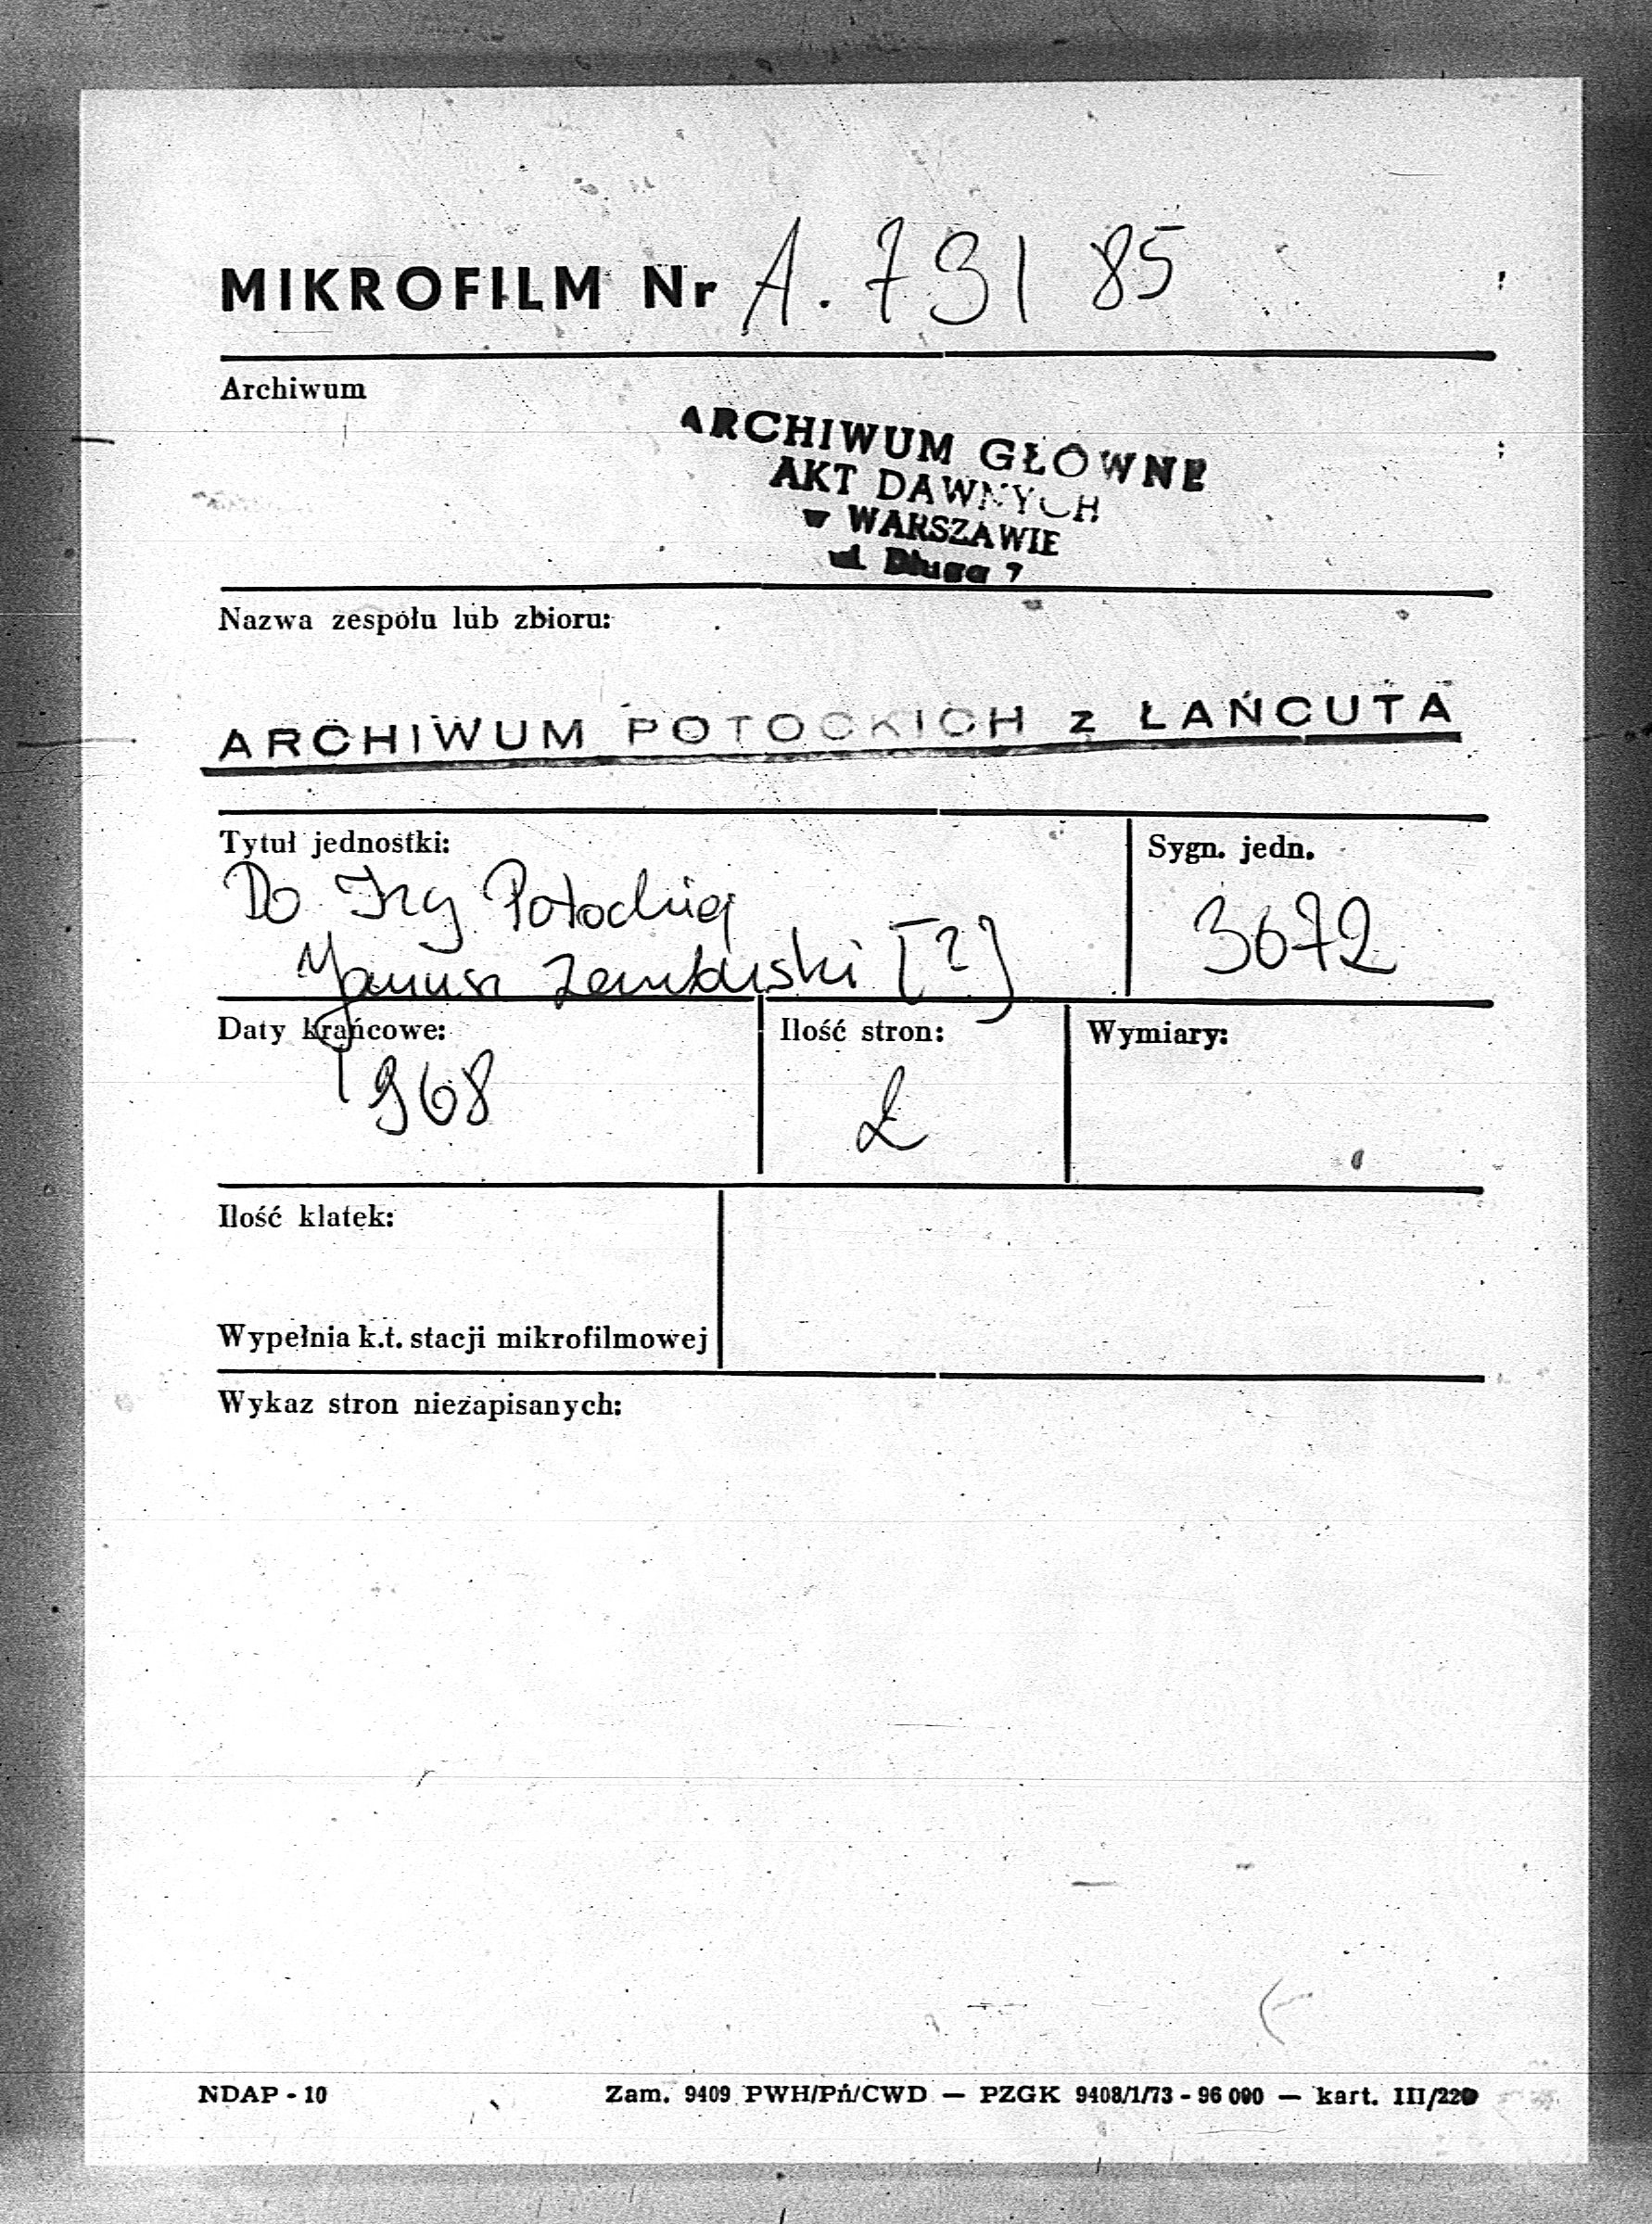 MIKROFILM Nr A. 791 85
Archiwum
ARCHIWUM GŁÓWNE
AKT DAWNYCH
w WARSZAWIE
ul. Długa 7
Nazwa zespołu lub zbioru:
ARCHIWUM POTOCKICH z ŁAŃCUTA
Tytuł jednostki:
Sygn. jedn.
Do Izy Potockiej
Janusz [?]
3672
Daty krańcowe:
Ilość stron:
Wymiary:
1968
2
Ilość klatek:
Wypełnia k.t. stacji mikrofilmowej
Wykaz stron niezapisanych:
NDAP - 10
Zam. 9409 PWH/Pń/CWD — PZGK 9408/1/73 - 96 000 — kart. III/220